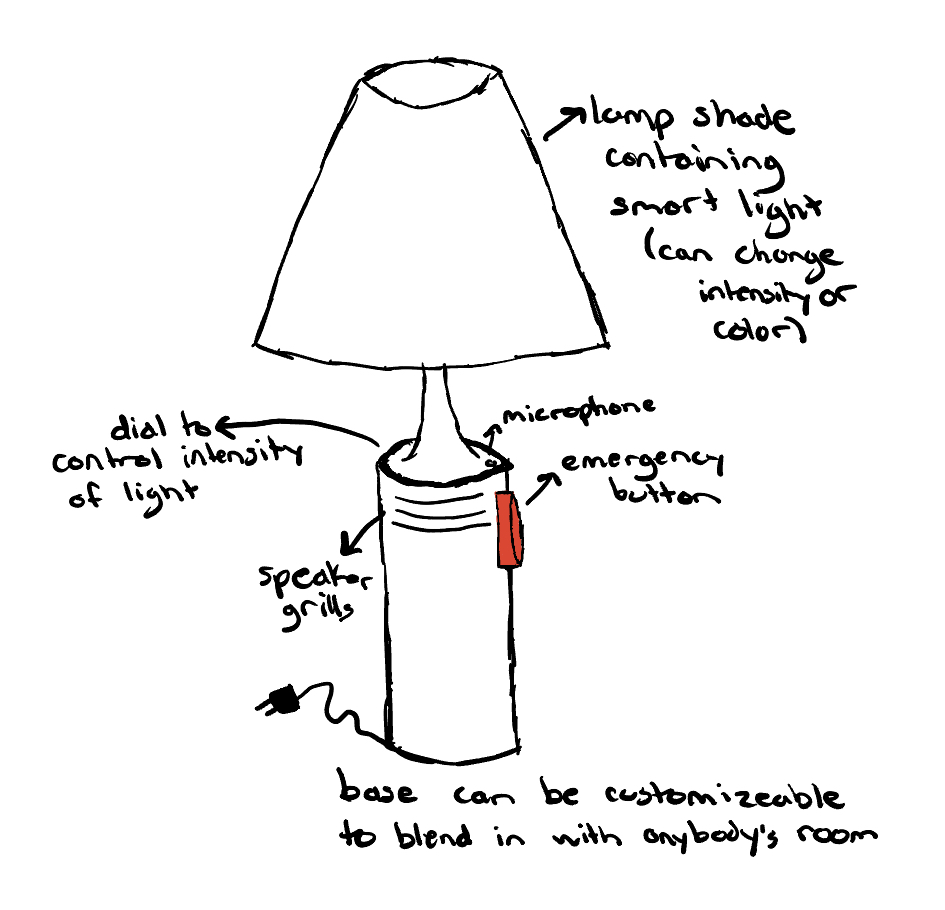 lamp shade
containing
smart light
(can change
intensity or
color)
microphone
dial to
control intensity
of light
emergency
button
speaker
grills
base can be customizeable
to blend in with anybody's room